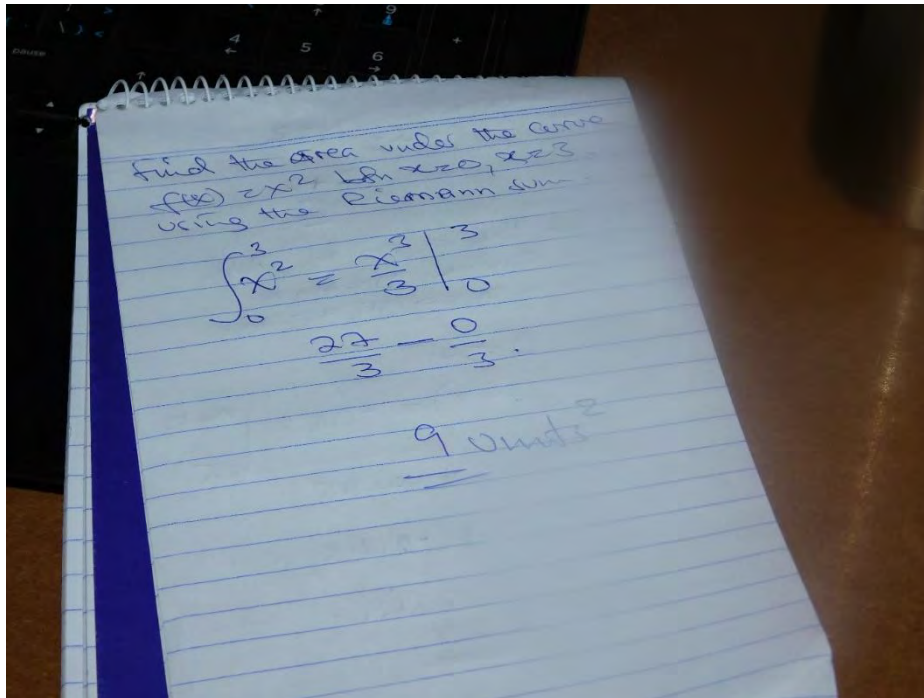 9
4
5
6
+
pause
Find the area under the curve
f(x) = x², btn x=0, x=3
using the Riemann sum
∫₀³ x² = x³/3 |₀³
27/3 - 0/3 .
9 units²